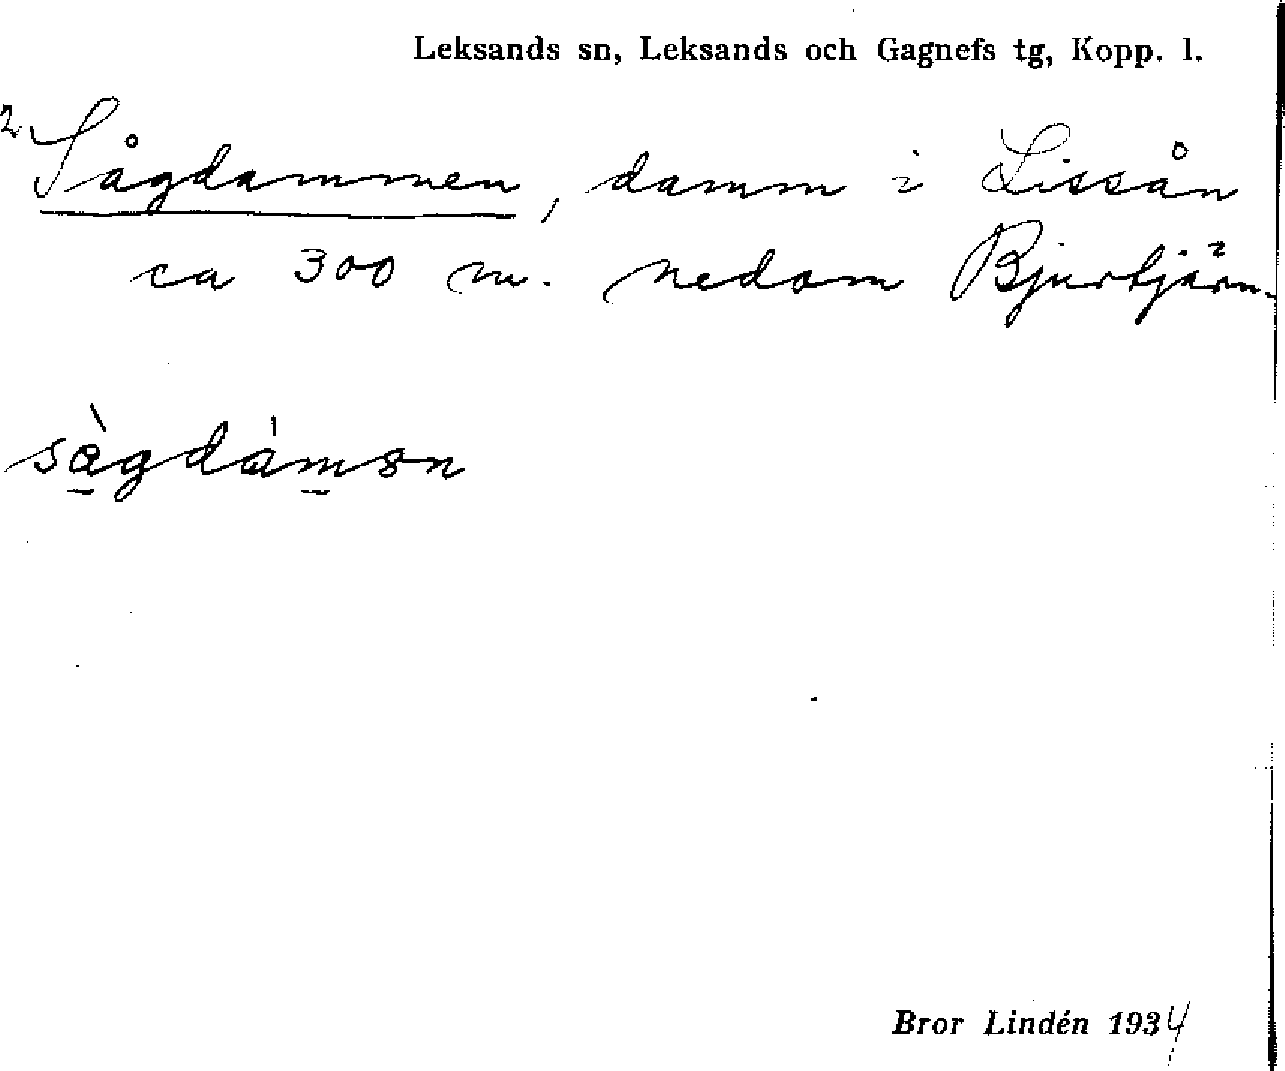 Leksands sn, Leksands och Gagnefs tg, Kopp. l.
2 Sågdammen, damm i Lissån
ca 300 m. nedom Bjurtjärn.
Bror Lindén 1934